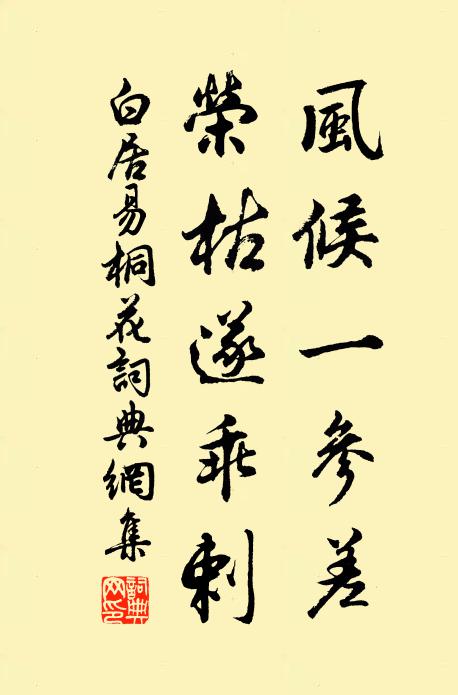 風候一參差
榮枯遂乖剌
白居易桐花詞典網集
詞典網印